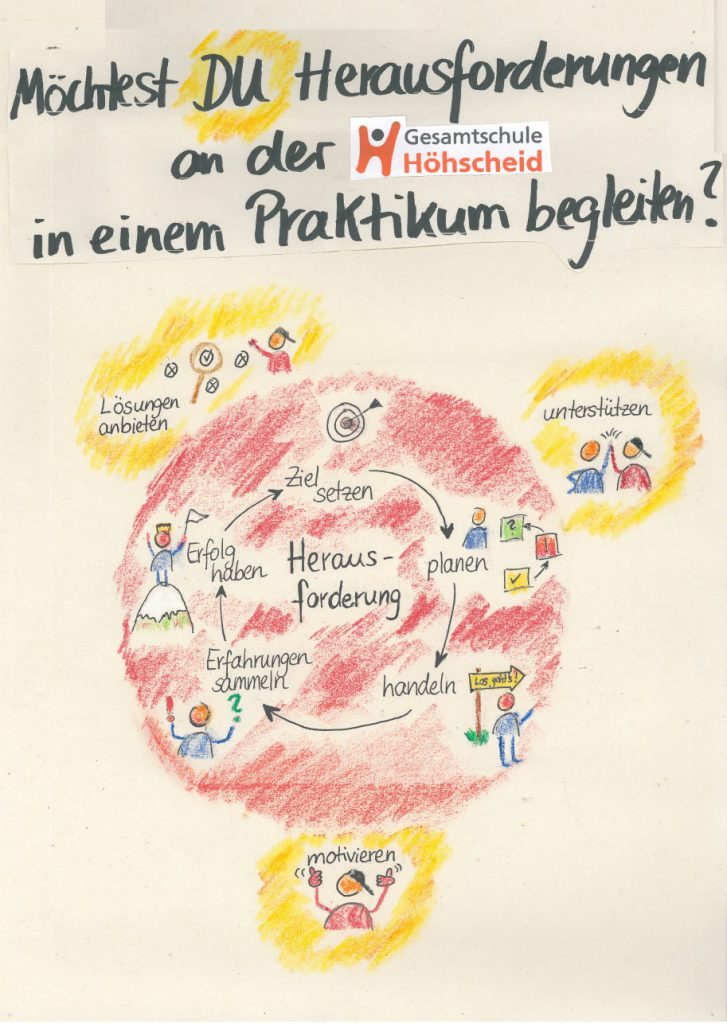 Möchtest DU Herausforderungen
an der Gesamtschule
Höhscheid
in einem Praktikum begleiten?
Lösungen
anbieten
unterstützen
Ziel
setzen
planen
?
!
Heraus-
forderung
Erfolg
haben
Erfahrungen
sammeln
handeln
Los geht's!
!
?
motivieren